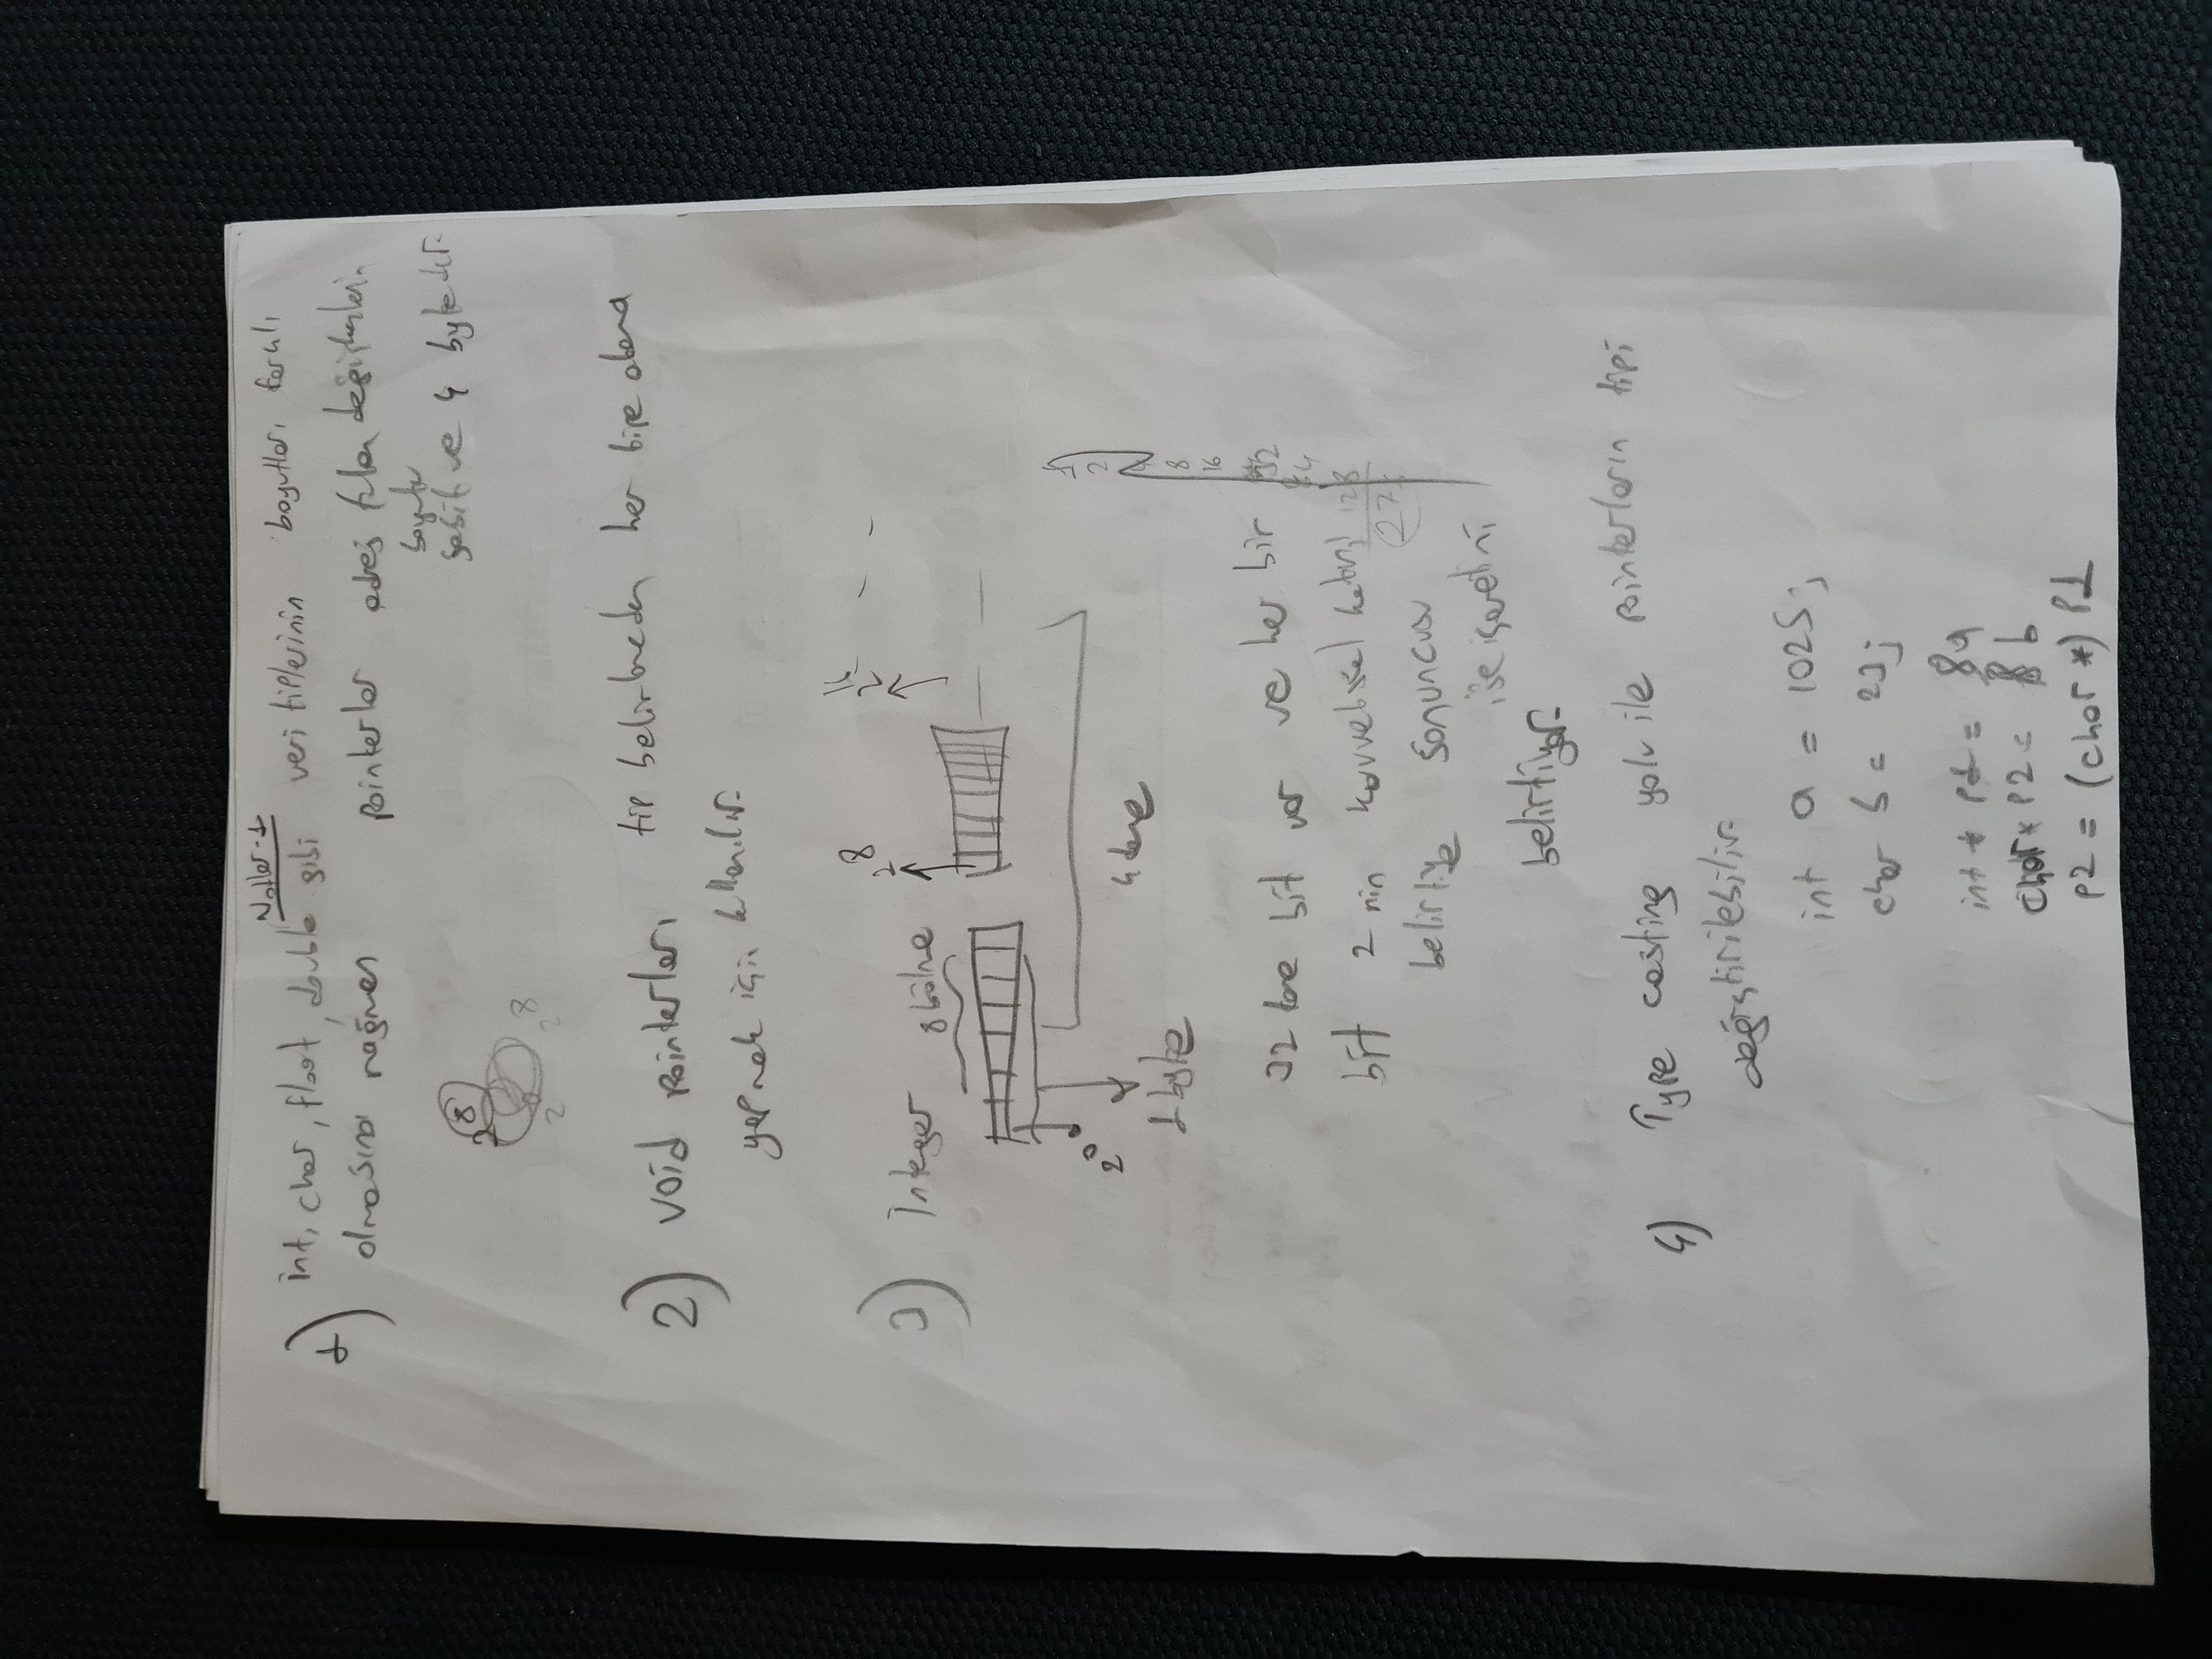 Notlar-1
1) int, char, float, double gibi veri tiplerinin boyutları farklı
olmasına rağmen pointerlar adres tutan değişkenlerin
boyutu
sabit ve 4 bytedır.
2^8
2^0 2^8
2) void pointerları tip belirtmeden her tipe atama
yapmak için kullanılır.
3) Integer 8 bölme 2^8 2^16 - -
2^0
1 byte
4 tane
1
2
8
16
32
64
128
32 tane bit var ve her bir
bit 2 nin kuvvetsel katını
belirtiyor sonuncusu
ise işaretini
belirtiyor.
4) Type casting yolu ile pointerların tipi
değiştirilebilir.
int a = 1025;
char b = 23;
int * p1 = &a
char* p2 = & b
p2 = (char *) p1